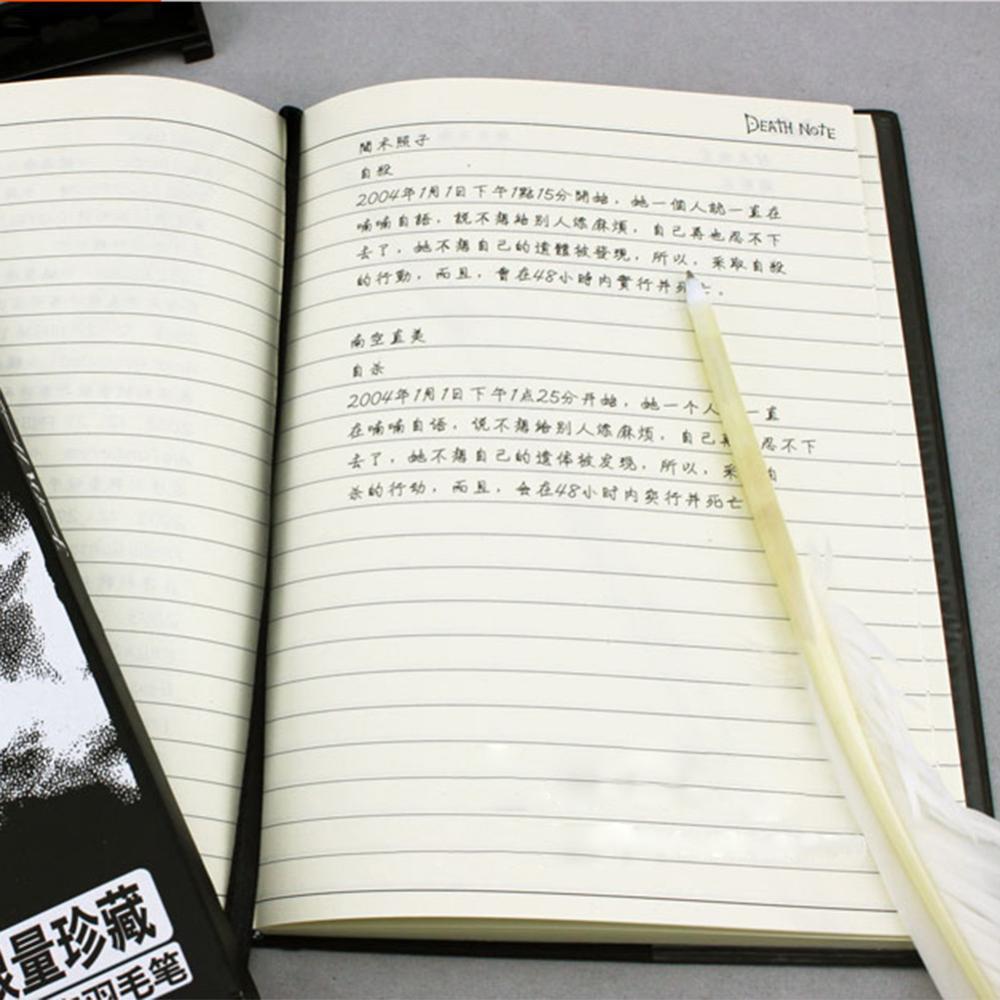 DEATH NOTE
間木照子
自殺
2004年1月1日下午1點15分開始，她一個人說一直在
喃喃自語，說不想給別人添麻煩，自己再也忍不下
去了，她不想自己的遺體被發現，所以，采取自殺
的行動，而且，會在48小時內實行并死亡。
南空直美
自杀
2004年1月1日下午1点25分开始，她一个人一直
在喃喃自语，说不想给别人添麻烦，自己再忍不下
去了，她不想自己的遗体被发现，所以，采自
杀的行动，而且，会在48小时内实行并死亡
限量珍藏
羽毛笔